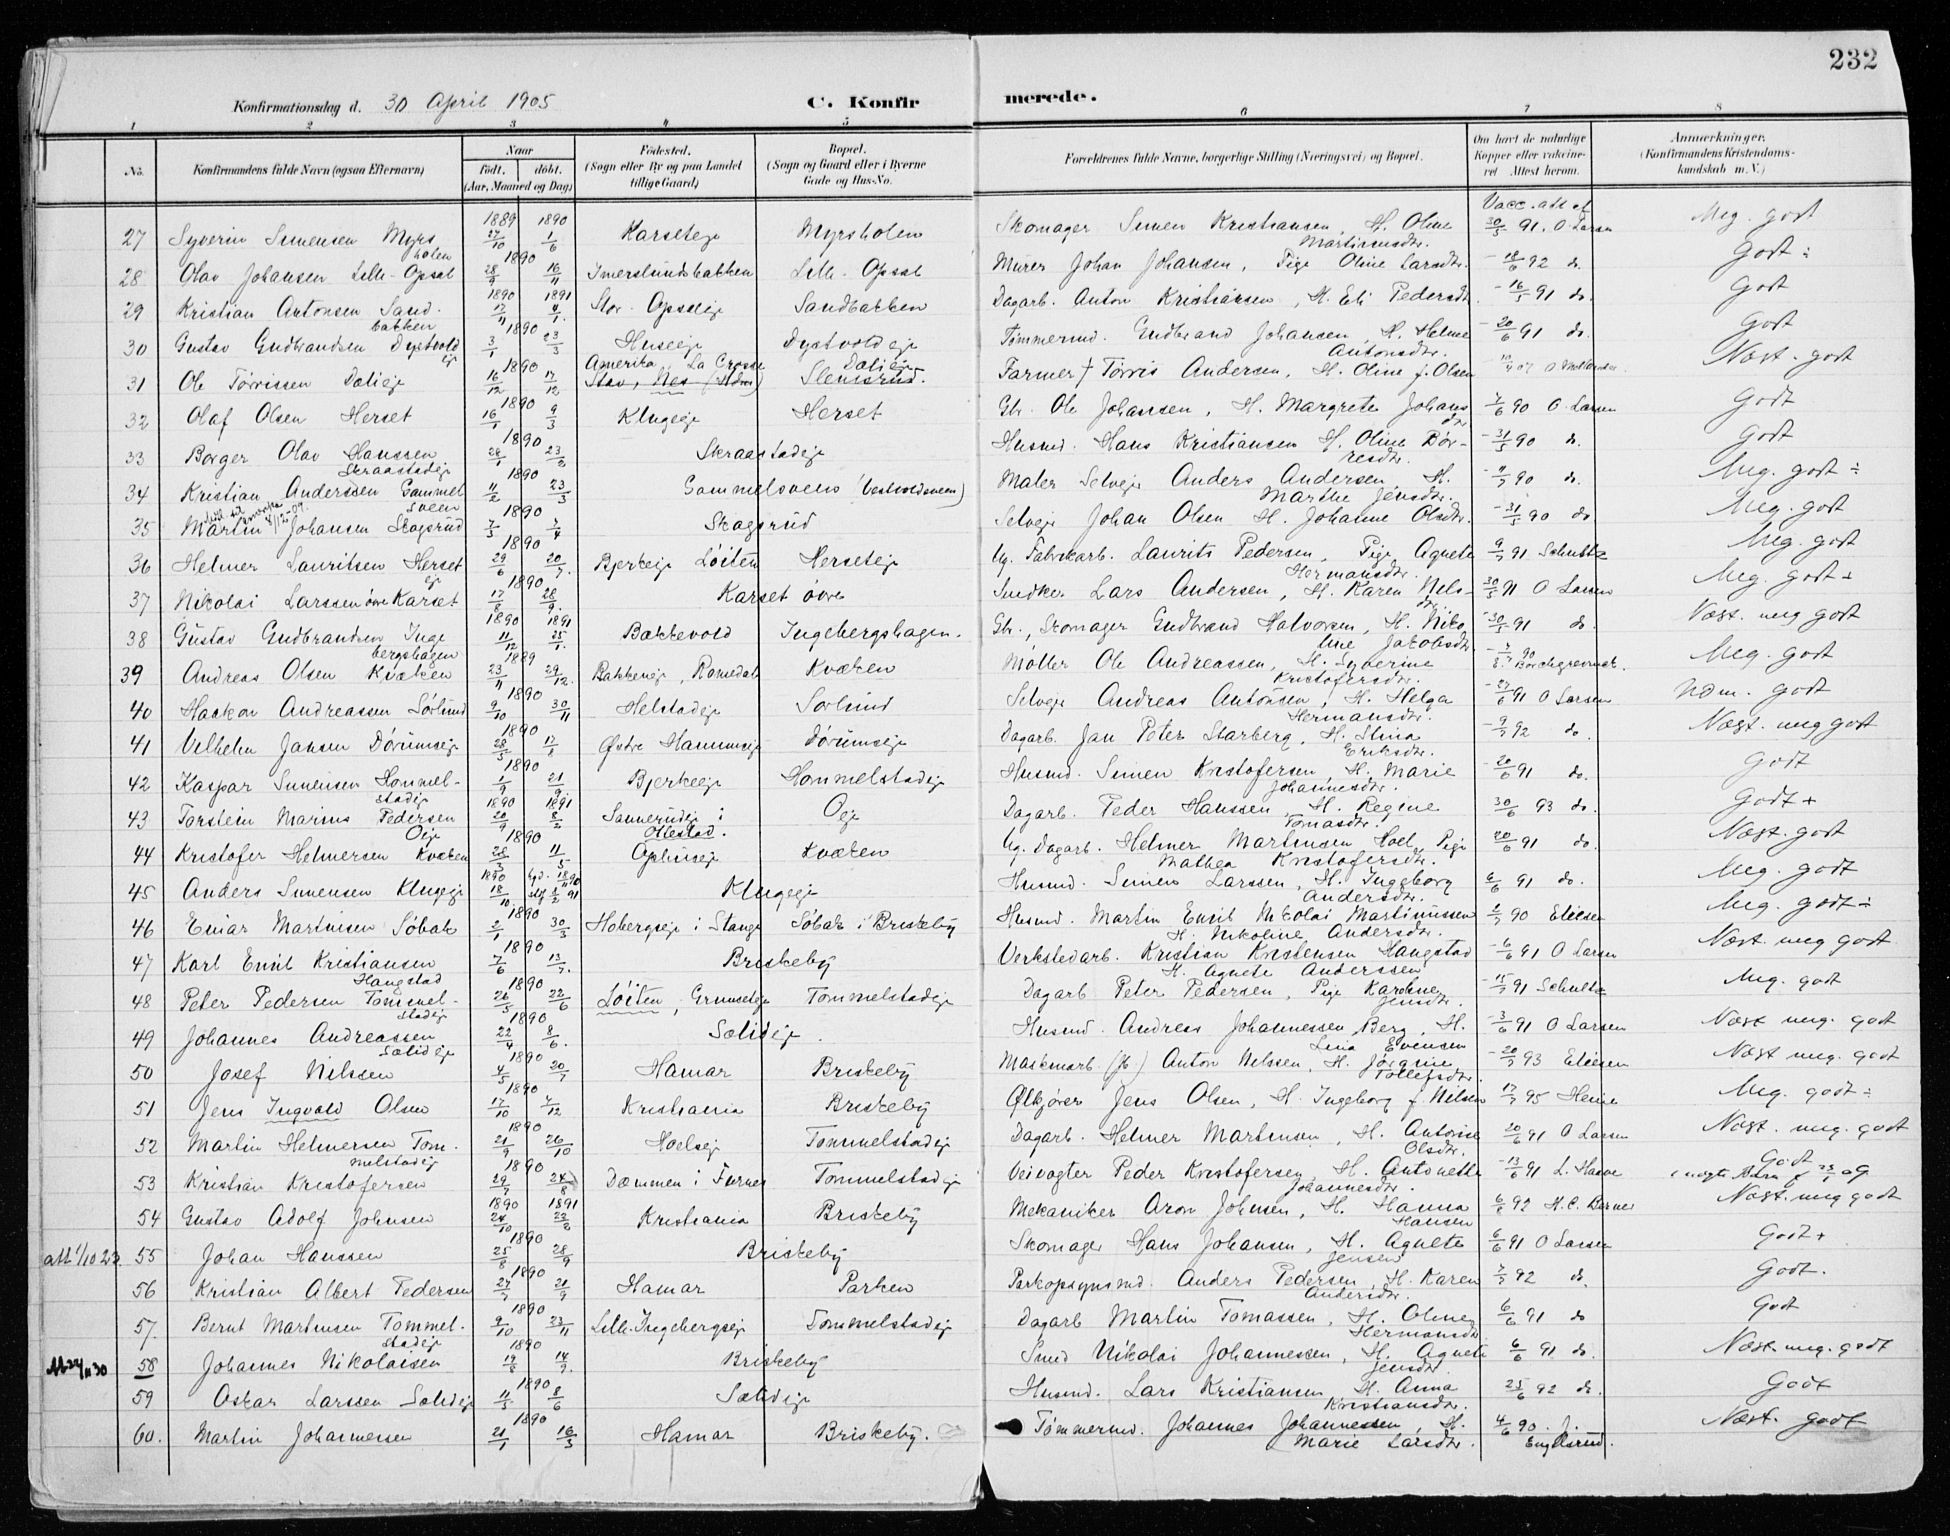 232
Konfirmationsdag d. 30 April 1905 C. Konfir merede.
1 2 3 4 5 6 7 8
No. Konfirmandens fulde Navn (ogsaa Efternavn) Naar født. døbt. (Aar, Maaned og Dag) Fødested. (Sogn eller By og paa Landet tillige Gaard) Bopæl. (Sogn og Gaard eller i Byerne Gade og Hus-No. Forældrenes fulde Navne, borgerlige Stilling (Næringsvei) og Bopæl. Om havt de naturlige Kopper eller vaccineret Attest herom. Anmærkninger. (Konfirmandens Kristendomskundskab m. V.)
27 Syverin Simensen Myrsholen 1889 27/10 1890 1/6 Karseteje Myrsholen Skomager Simen Kristiansen, H. Oline Martinusdtr. Vacc. att af 30/5 91. O. Larsen Meg. godt
28 Olav Johansen Lille-Opsal 1890 28/9 16/11 Imerslundsbakken Lille-Opsal Murer Johan Johansen, Pige Oline Larsdtr. 18/6 92 do. Godt ÷
29 Kristian Antonsen Sandbakken 1890 17/11 1891 4/1. Stor-Opsaleje Sandbakken Dagarb. Anton Kristiansen, H. Eli Pedersdtr. 16/5 91 do. Godt
30 Gustav Gudbrandsen Dystvoldeje 1890 3/1 23/3 Huseeje Dystvoldeje Tømmermd. Gudbrand Johansen, H. Helene Antonsdtr. 20/6 91 do. Godt
31 Ole Torrissen Dalieje 1890 16/12 17/12 Amerika, La Crosse Stav, Nes (Hdm) Dalieje Slemsrud. Farmer † Torris Andersen, H. Oline f. Olsen Næst. godt
32 Olaf Olsen Herset 1890 16/1 9/3 Klugeje Herset Gbr. Ole Johansen, H. Margrete Johansdtr 7/6 90 O. Larsen Godt
33 Borger Olav Hanssen Skraastadeje 1890 28/1 23/3 Skraastadeje Husmd. Hans Kristiansen H. Oline Børresdtr. 31/5 90 do. Godt
34 Kristian Anderssen Gammelsveen 1890 11/2 23/3 Gammelsveen (Vestvoldsveen) Maler Selveje Anders Andersen, H. Marthe Jensdtr. 11/7 90 do. Meg. godt ÷
35 Martin Johansen Skogsrud 1890 7/3 7/4 Skogsrud Selveje Johan Olsen H. Johanne Olsdtr. 31/5 90 do Meg. godt
36 Helmer Lauritsen Herseteje 1890 29/6 20/7. Bjerkeje Løiten Herseteje Ug. Fabrikarb. Laurits Pedersen, Pige Agnete Hermansdtr. 9/7 91 Schultz Meg. godt
37 Nikolai Larssen øvre Karset 1890 17/8 28/9. Karset øvre Snedker Lars Andersen, H. Karen Nelsdtr. 30/5 91 O Larsen Meg. godt ÷
38 Gustav Gudbrandsen Ingebergshagen 1890 11/12 1891 25/1. Bakkevold Ingebergshagen. Gbr., Skomager Gudbrand Halvorsen, H. Nikoline Jakobsdtr. 30/5 91 do. Næst. meg godt
39 Andreas Olsen Kvæken 1889 23/11 29/12. Bakkeneje, Romedal Kvæken Møller Ole Andreassen, H. Syverine Kristofersdtr. 90 Borchgrevink. Meg. godt
40 Haakon Andreassen Sørlund 1890 9/10 30/11 Helstadeje Sørlund Selveje Andreas Antonsen, H. Helga Hermansdtr. 27/6 91 O Larsen Ndm. godt
41 Vilhelm Jansen Dørumseje 1890 28/5 17/8 Østre Hammerseje Dørumseje Dagarb. Jan Peter Starberg, H. Stina Eriksdtr. 9/7 92 do. Næst. meg godt
42 Kaspar Simensen Hommelstadeje 1890 1/9 21/9. Bjerkeeje Hommelstadeje Husmd. Simen Kristofersen, H. Marie Johannesdtr. 20/6 91 do. Godt
43 Torstein Marius Pedersen Oeje 1890 20/9 1891 8/2 Sannerudeje i Ottestad. Oeje Dagarb. Peder Hanssen, H. Regine Tomasdtr. 30/6 93 do. Godt +
44 Kristofer Helmersen Kvæken 1890 28/3 11/5 Ophuseje Kvæken Ug. Dagarb. Helmer Martinsen Hoel, Pige Mathea Kristofersdtr. 20/6 91 do. Næst. godt
45 Anders Simensen Klugeje 1890 18/10. Klugeje Husmd. Simen Larssen, H. Ingeborg Andersdtr. 6/6 91 do. Meg. godt
46 Einar Martinsen Søbak 1890 2/1 30/3 Hobergseje i Stange Søbak i Briskeby Husmd. Martin Emil Nikolai Martinussen H. Nikoline Andersdtr. 2/7 90 Eliesen Meg. godt ÷
47 Karl Emil Kristiansen Haugstad 1890 7/6 13/7. Briskeby Verkstedarb. Kristian Kristensen Haugstad H. Agnete Anderssen 6/6 91 O Larsen Næst. meg godt
48 Peter Pedersen Tommelstadeje 1890 26/5 22/6 Løiten, Grimseteje Tommelstadeje Dagarb Peter Pedersen, Pige Karoline Jensdtr. 15/7 91 Schultz Meg. godt
49 Johannes Andreassen Sælideje 1890 22/4 8/6. Sælideje. Husmd. Andreas Johannessen Berg, H. Lina Evensen 3/6 91 O Larsen Næst meg. godt
50 Josef Nilssen 1890 4/5 20/7 Hamar Briskeby Maskinarb. (fb.) Anton Nilssen, H. Jørgine Tollefsdtr. 20/7 93 Eliesen Næst meg. godt
51 Jens Ingvald Olsen 1890 17/10 7/12 Kristiania Briskeby Ølkjører Jens Olsen, H. Ingeborg f. Nilsen 17/7 95 Heme Meg. godt ÷
52 Martin Helmersen Tommelstadeje 1890 21/9 26/10 Hoelseje Tommelstadeje Dagarb. Helmer Martinsen, H. Antonie Olsdtr. 20/6 91 O Larsen Næst. meg. godt
53 Kristian Kristofersen 1890 29/7 24/8 Dæmmen i Furnes Tommelstadeje Veivogter Peder Kristofersen, H. Antonette Johannesdtr. 13/6 91 L. Hasve Godt
54 Gustav Adolf Johnsen 1890 24/10 1891 22/2 Kristiania Briskeby Mekaniker Aron Johnsen, H. Hanna Hansen 6/8 92 H.C. Berner Næst. meg godt
att 1/10 23. 55 Johan Hanssen 1890 25/8 28/9 Briskeby Skomager Hans Johansen, H. Agnete Jensen 6/6 91 O Larsen Godt +
56 Kristian Albert Pedersen 1890 27/7 21/9 Hamar Parken Parkopsynsmd. Anders Pedersen, H. Karen Andersdtr. 7/7 92 do. Godt.
57. Bernt Martinsen Tommelstadeje 1890 9/10 23/11 Lille-Ingebergseje Tommelstadeje Dagarb Martin Tomassen, H. Oline Hermansdtr 6/6 91 do Godt
58 Johannes Nikolaisen 1890 19/8 14/9. Briskeby Smed Nikolai Johannessen, H. Agnete Jensdtr. 6/6 91 do. Næst. meg. godt
59 Oskar Larssen Sælideje 1890 11/5 8/6 Sælideje Husmd. Lars Kristiansen, H. Anna Kristiansdtr. 25/6 92 do. Godt
60. Martin Johannesen 1890 21/1 16/3 Hamar Briskeby. Tømmermd. Johannes Johannessen, H. Marie Larsdtr. 4/6 90. J. Engelsrud. Næst. godt